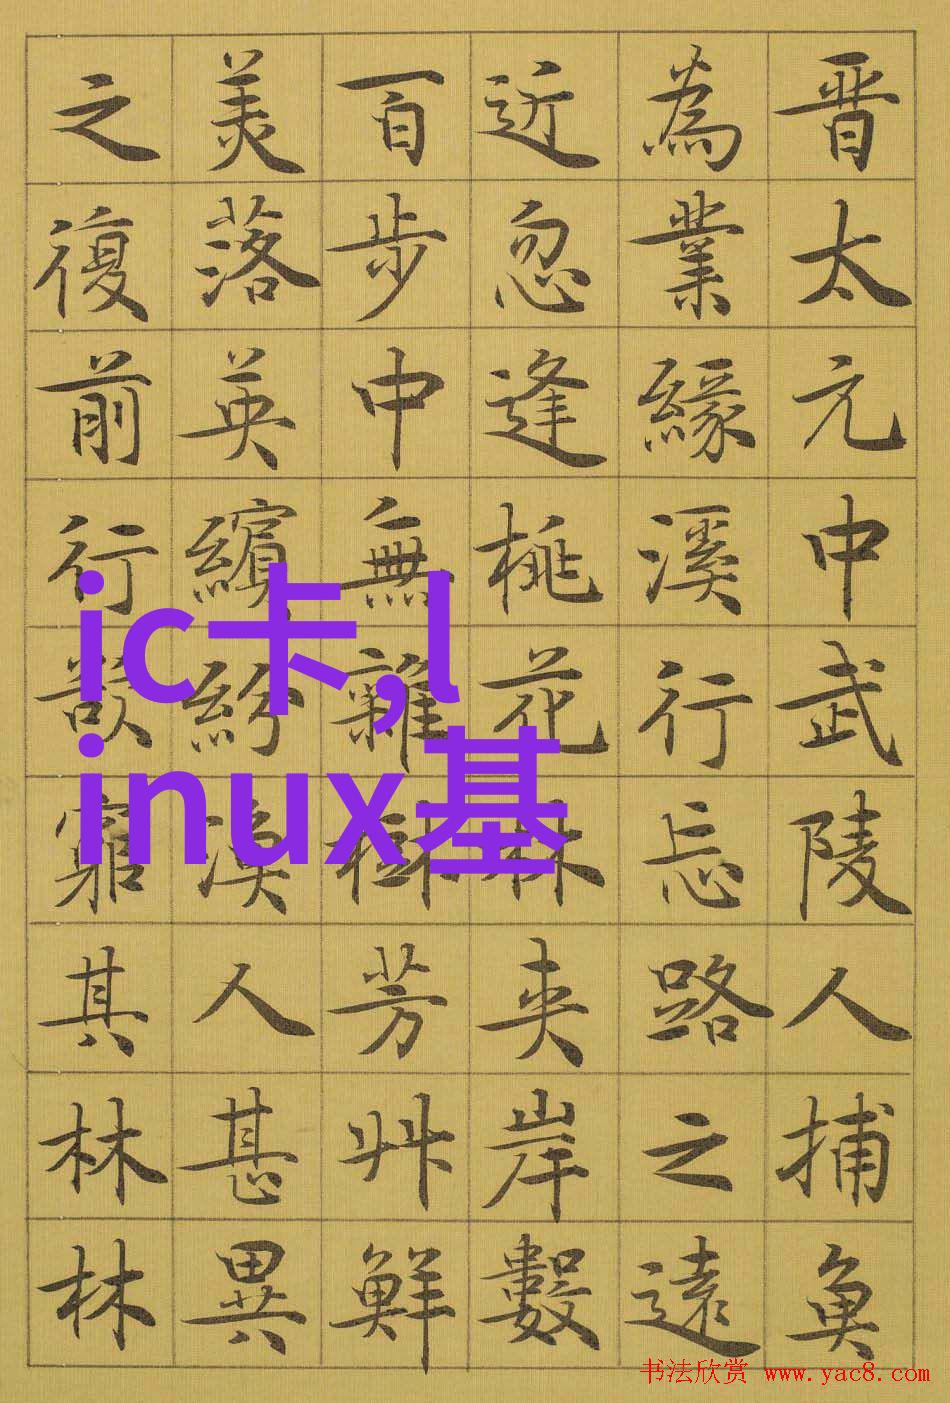 晋太元中武陵人捕魚
為業緣溪行忘路之遠
近忽逢桃花林夾岸數
百步中無雜樹芳艸鮮
美落英繽紛漁人甚異
之復前行欲窮其林林
ic卡,l
inux基
书法欣赏 www.yac8.com